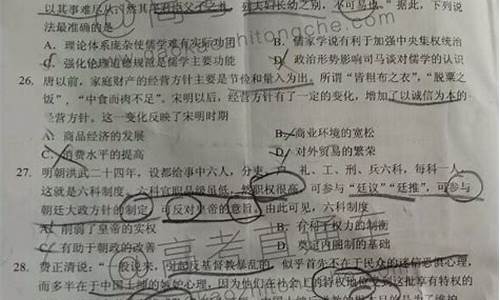 以其事难尽从，然其序君臣父子之礼，列夫妇长幼之别，不可易也。”据此，下列说
法最准确的是
A. 理论体系庞杂使儒学难有实际功用
B. 儒家学说有利于加强中央集权统治
C. 强化伦理道德规范是儒学主要功能
D. 政治形势影响司马谈对儒学的认识
26. 唐以前，家庭财产的经营方针主要是节俭和量入为出，所谓“皆粗布之衣”，“脱粟之
饭”，“中食而肉不足”。宋明以后，经营方针有了一定的变化，增加了以诚信为本的
经营方针。这一变化反映了宋明时期
A. 商品经济的发展
B. 商业环境的宽松
C. 消费水平的提高
D. 对外贸易的繁荣
27. 明朝洪武二十四年，设都给事中六人，分吏、户、礼、工、刑、兵六科，每科一人，
这就是六科制度。六科官职品级虽低，然职权很高，可参与“廷议”“廷推”，可参与
朝廷大政方针的制定，可反对皇帝的意旨。由此可见，六科制度
A. 削弱了皇帝的实权
B. 有利于权力的制衡
C. 有助于朝政的改善
D. 奠定内阁制的基础
28. 费正清说：“一般说来，对起反基督教暴乱的，似乎首先不在于民众的迷信恐惧心理，
而多半在于中国士绅的妒妒心理，因为他们在社会上的特权地位受到这批享有特权的